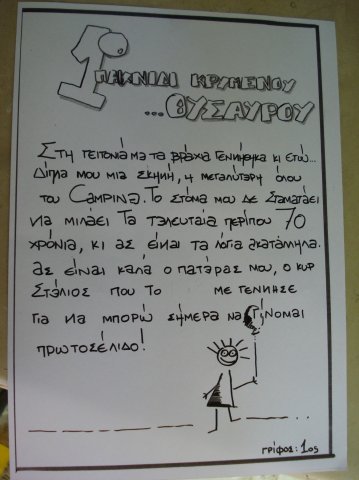 1ο
ΠΑΙΧΝΙΔΙ ΚΡΥΜΕΝΟΥ
...ΘΥΣΑΥΡΟΥ
ΣΤΗ ΓΕΙΤΟΝΙΑ Μ'Α ΤΑ ΒΡΑΧΙΑ ΓΕΝΗΘΗΚΑ ΚΙ ΕΓΩ...
ΔΙΠΛΑ ΜΟΥ ΜΙΑ ΣΚΗΝΗ, Η ΜΕΓΑΛΥΤΕΡΗ ΟΛΟΥ
ΤΟΥ CAMPING. ΤΟ ΣΤΟΜΑ ΜΟΥ ΔΕ ΣΤΑΜΑΤΑΕΙ
ΝΑ ΜΙΛΑΕΙ ΤΑ ΤΕΛΕΥΤΑΙΑ ΠΕΡΙΠΟΥ 70
ΧΡΟΝΙΑ, ΚΙ ΑΣ ΕΙΝΑΙ ΤΑ ΛΟΓΙΑ ΑΚΑΤΑΛΗΛΑ.
ΑΣ ΕΙΝΑΙ ΚΑΛΑ Ο ΠΑΤΕΡΑΣ ΜΟΥ, Ο ΚΥΡ
ΣΤΕΛΙΟΣ ΠΟΥ ΤΟ ΜΕ ΓΕΝΗΣΕ
ΓΙΑ ΝΑ ΜΠΟΡΩ ΣΗΜΕΡΑ ΝΑ ΓΙΝΟΜΑΙ
ΠΡΩΤΟΣΕΛΙΔΟ!
ΓΡΙΦΟΣ: 1ος